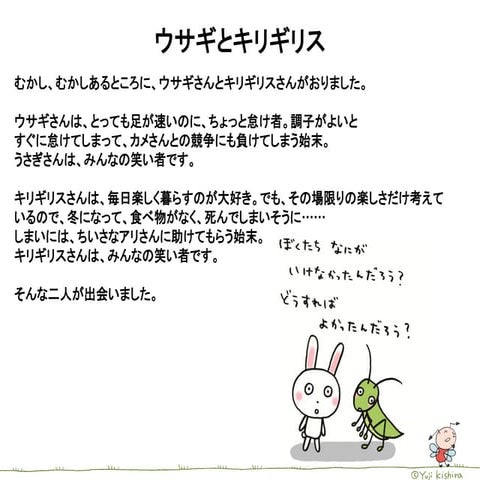 ウサギとキリギリス
むかし、むかしあるところに、ウサギさんとキリギリスさんがおりました。
ウサギさんは、とっても足が速いのに、ちょっと怠け者。調子がよいと
すぐに怠けてしまって、カメさんとの競争にも負けてしまう始末。
うさぎさんは、みんなの笑い者です。
キリギリスさんは、毎日楽しく暮らすのが大好き。でも、その場限りの楽しさだけ考えて
いるので、冬になって、食べ物がなく、死んでしまいそうに……
しまいには、ちいさなアリさんに助けてもらう始末。
キリギリスさんは、みんなの笑い者です。
そんな二人が出会いました。
ぼくたち なにが
いけなかったんだろう?
どうすれば
よかったんだろう?
©Yuji Kishira